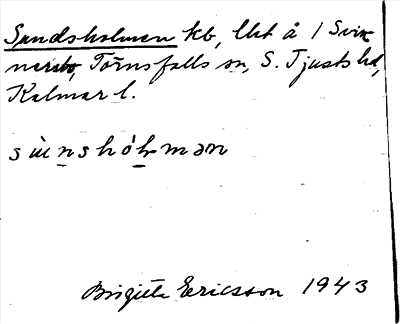 Sundsholmen kb, lht å 1 Svix
nersbo, Törnsfalls sn, S. Tjusts hd,
Kalmar l.
sùnshólmən
Birgitta Ericsson 1943